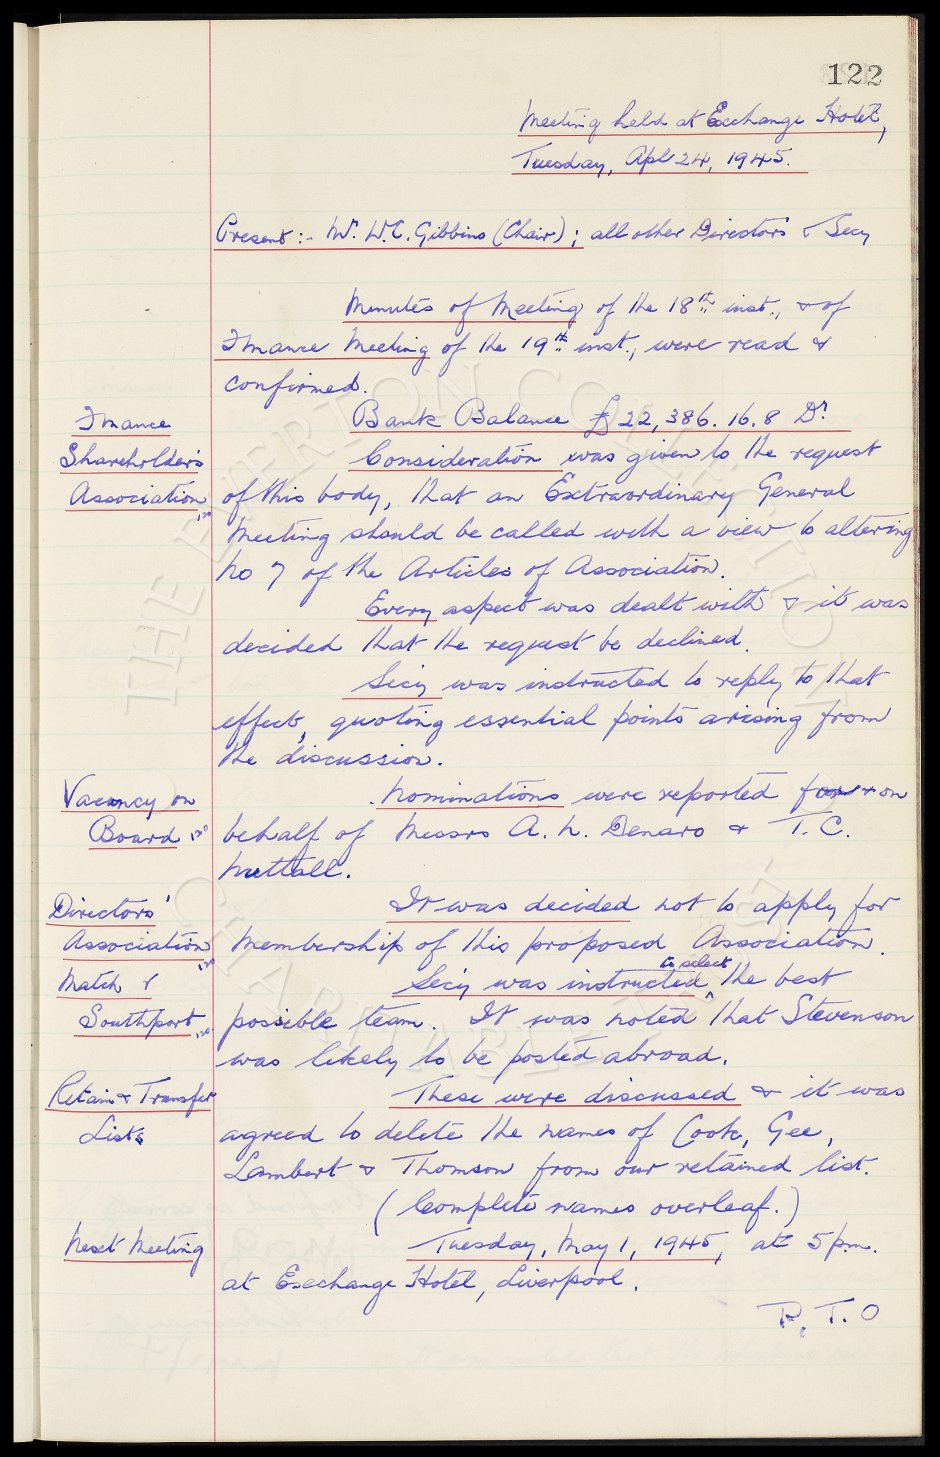 122
Meeting held at Exchange Hotel,
Tuesday, Apl 24, 1945.
Present:- Mr. W.C. Gibbins (Chair); all other Directors & Secy
Minutes of Meeting of the 18th inst., & of
Finance Meeting of the 19th inst., were read &
confirmed.
Finance
Bank Balance £22,386.16.8 Dr
Shareholders
Association
Consideration was given to the request
of this body, that an Extraordinary General
Meeting should be called with a view to altering
No 7 of the Articles of Association.
Every aspect was dealt with & it was
decided that the request be declined.
Secy was instructed to reply to that
effect, quoting essential points arising from
the discussion.
Vacancy on
Board
Nominations were reported for & on
behalf of Messrs A. N. Denaro & T.C.
Nuttall.
Directors'
Association
It was decided not to apply for
membership of this proposed Association.
Match v
Southport
Secy was instructed to select the best
possible team. It was noted that Stevenson
was likely to be posted abroad.
Retain & Transfer
Lists
These were discussed & it was
agreed to delete the names of Cook, Gee,
Lambert & Thomson from our retained list.
(Complete names overleaf.)
Next Meeting
Tuesday, May 1, 1945, at 5 p.m.
at Exchange Hotel, Liverpool.
P.T.O
THE EVERTON COLLECTION
CHARITABLE TRUST